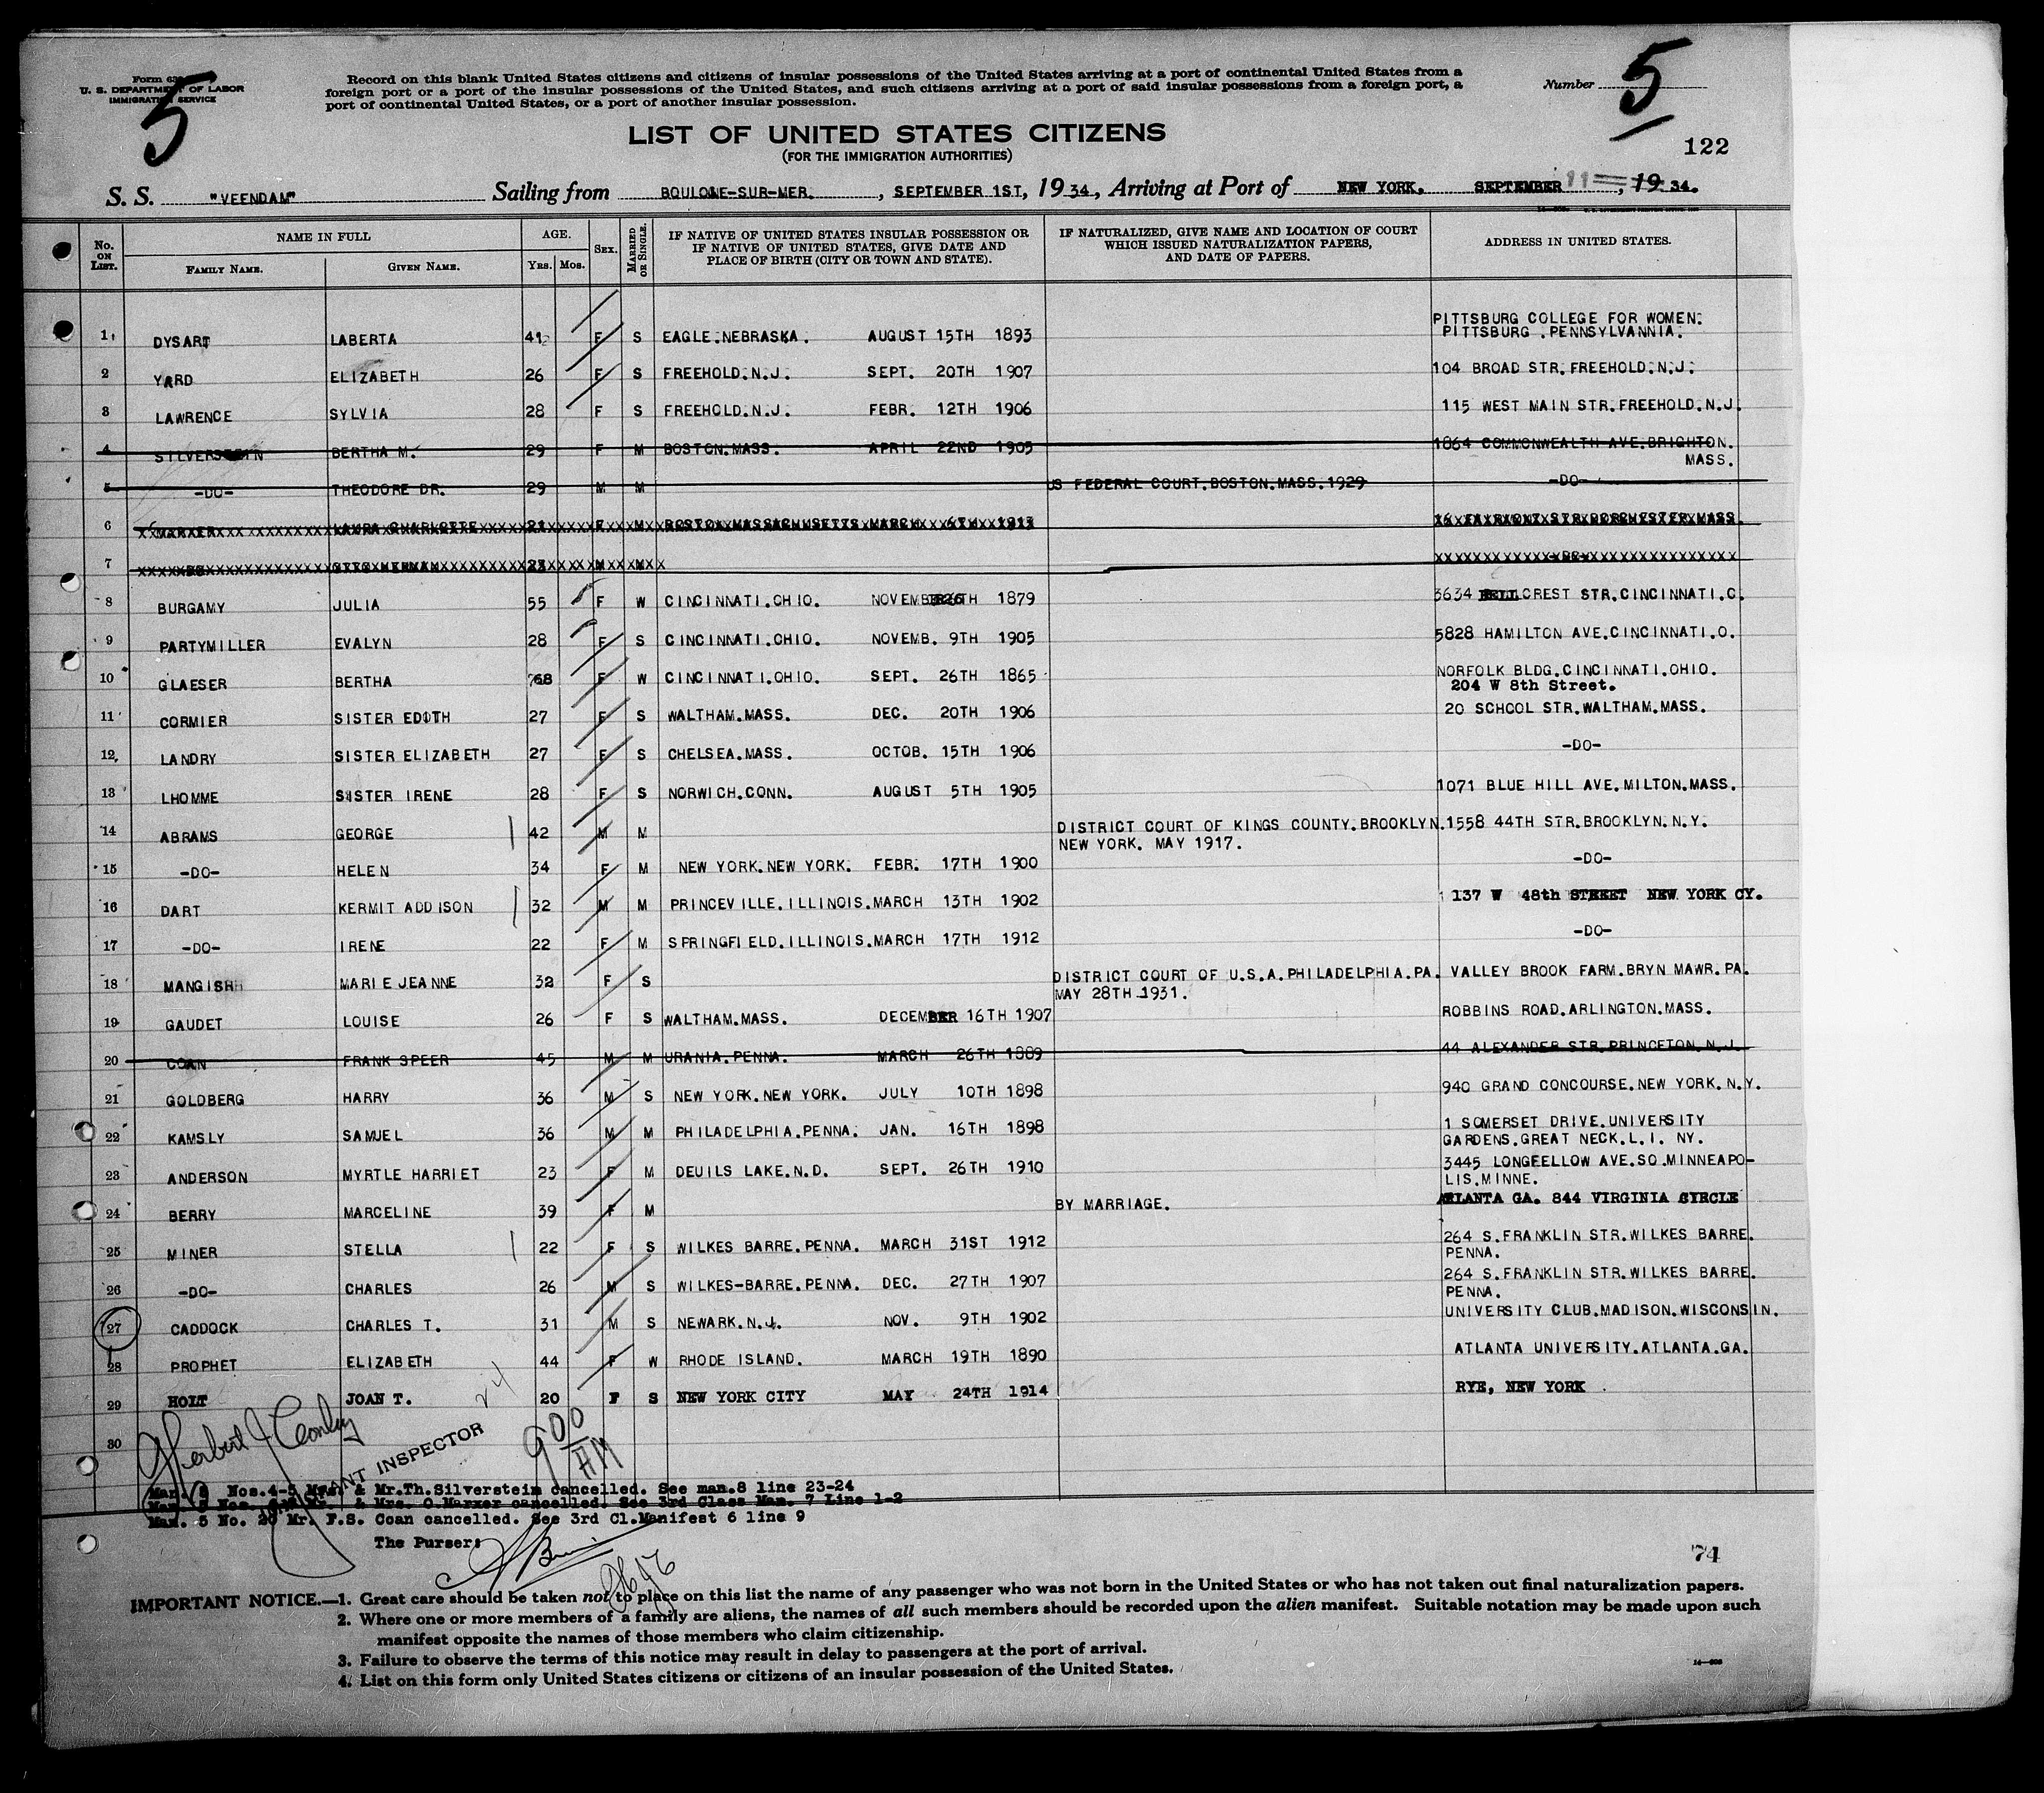 5
5
Form 63
U. S. DEPARTMENT OF LABOR
IMMIGRATION SERVICE
Record on this blank United States citizens and citizens of insular possessions of the United States arriving at a port of continental United States from a
foreign port or a port of the insular possessions of the United States, and such citizens arriving at a port of said insular possessions from a foreign port, a
port of continental United States, or a port of another insular possession.
Number
122
LIST OF UNITED STATES CITIZENS
(FOR THE IMMIGRATION AUTHORITIES)
S. S. "VEENDAM" Sailing from BOULOGNE-SUR-MER. , SEPTEMBER 1ST, 1934, Arriving at Port of NEW YORK. SEPTEMBER 11, 1934.
No. ON LIST. NAME IN FULL AGE. SEX. MARRIED OR SINGLE. IF NATIVE OF UNITED STATES INSULAR POSSESSION OR IF NATIVE OF UNITED STATES, GIVE DATE AND PLACE OF BIRTH (CITY OR TOWN AND STATE). IF NATURALIZED, GIVE NAME AND LOCATION OF COURT WHICH ISSUED NATURALIZATION PAPERS, AND DATE OF PAPERS. ADDRESS IN UNITED STATES.
FAMILY NAME. GIVEN NAME. YRS. MOS.
1 DYSART LABERTA 41 F S EAGLE.NEBRASKA. AUGUST 15TH 1893 PITTSBURG COLLEGE FOR WOMEN.
PITTSBURG .PENNSYLVANNIA.
2 YARD ELIZABETH 26 F S FREEHOLD.N.J. SEPT. 20TH 1907 104 BROAD STR.FREEHOLD.N.J.
3 LAWRENCE SYLVIA 28 F S FREEHOLD.N.J. FEBR. 12TH 1906 115 WEST MAIN STR.FREEHOLD.N.J.
4 SILVERSTEIN BERTHA M. 29 F M BOSTON.MASS. APRIL 22ND 1905 1864 COMMONWEALTH AVE.BRIGHTON.
MASS.
5 -DO- THEODORE DR. 29 M M US FEDERAL COURT.BOSTON.MASS.1929 -DO-
6 MARXER LAURA CHARLOTTE 21 F M BOSTON.MASSACHUSETTS MARCH 6TH 1913 16 FAIRMONT STR.DORCHESTER.MASS.
7 -DO- OTTO HERMAN 23 M M -DO-
8 BURGAMY JULIA 55 F W CINCINNATI.OHIO. NOVEMBER 26TH 1879 3634 HILLCREST STR.CINCINNATI.O.
9 PARTYMILLER EVALYN 28 F S CINCINNATI.OHIO. NOVEMB. 9TH 1905 5828 HAMILTON AVE.CINCINNATI.O.
10 GLAESER BERTHA 68 F W CINCINNATI.OHIO. SEPT. 26TH 1865 NORFOLK BLDG.CINCINNATI.OHIO.
204 W 8th Street.
11 CORMIER SISTER EDITH 27 F S WALTHAM.MASS. DEC. 20TH 1906 20 SCHOOL STR.WALTHAM.MASS.
12 LANDRY SISTER ELIZABETH 27 F S CHELSEA.MASS. OCTOB. 15TH 1906 -DO-
13 LHOMME SISTER IRENE 28 F S NORWICH.CONN. AUGUST 5TH 1905 1071 BLUE HILL AVE.MILTON.MASS.
14 ABRAMS GEORGE 42 M M DISTRICT COURT OF KINGS COUNTY.BROOKLYN. 1558 44TH STR.BROOKLYN.N.Y.
NEW YORK. MAY 1917.
15 -DO- HELEN 34 F M NEW YORK.NEW YORK. FEBR. 17TH 1900 -DO-
16 DART KERMIT ADDISON 32 M M PRINCEVILLE.ILLINOIS.MARCH 13TH 1902 137 W 48th STREET NEW YORK CY.
17 -DO- IRENE 22 F M SPRINGFIELD.ILLINOIS.MARCH 17TH 1912 -DO-
18 MANGISHH MARIE JEANNE 32 F S DISTRICT COURT OF U.S.A.PHILADELPHIA.PA. VALLEY BROOK FARM.BRYN MAWR.PA.
MAY 28TH 1931.
19 GAUDET LOUISE 26 F S WALTHAM.MASS. DECEMBER 16TH 1907 ROBBINS ROAD.ARLINGTON.MASS.
20 COAN FRANK SPEER 45 M M URANIA.PENNA. MARCH 26TH 1889 44 ALEXANDER STR.PRINCETON.N.J.
21 GOLDBERG HARRY 36 M S NEW YORK.NEW YORK. JULY 10TH 1898 940 GRAND CONCOURSE.NEW YORK.N.Y.
22 KAMSLY SAMUEL 36 M M PHILADELPHIA.PENNA. JAN. 16TH 1898 1 SOMERSET DRIVE.UNIVERSITY
GARDENS.GREAT NECK.L.I. NY.
23 ANDERSON MYRTLE HARRIET 23 F M DEUILS LAKE.N.D. SEPT. 26TH 1910 3445 LONGFELLOW AVE.SO.MINNEAPO-
LIS.MINNE.
24 BERRY MARCELINE 39 F M BY MARRIAGE. ATLANTA GA. 844 VIRGINIA CYRCLE
25 MINER STELLA 22 F S WILKES BARRE.PENNA. MARCH 31ST 1912 264 S.FRANKLIN STR.WILKES BARRE.
PENNA.
26 -DO- CHARLES 26 M S WILKES-BARRE.PENNA. DEC. 27TH 1907 264 S.FRANKLIN STR.WILKES BARRE.
PENNA.
27 CADDOCK CHARLES T. 31 M S NEWARK.N.J. NOV. 9TH 1902 UNIVERSITY CLUB.MADISON.WISCONSIN.
28 PROPHET ELIZABETH 44 F W RHODE ISLAND. MARCH 19TH 1890 ATLANTA UNIVERSITY.ATLANTA.GA.
29 HOLT JOAN T. 20 F S NEW YORK CITY MAY 24TH 1914 RYE, NEW YORK .
30
24
Herbert J Conley
INSPECTOR
900
AM
Man. Nos.4-5 Mrs. & Mr.Th.Silverstein cancelled. See man.8 line 23-24
Man. 5 Nos. & Mrs. O.Marxer cancelled. See 3rd Class Man. 7 Line 1-2
Man. 5 No. 20 Mr. F.S. Coan cancelled. See 3rd Cl.Manifest 6 line 9
The Purser:
74
IMPORTANT NOTICE.—1. Great care should be taken not to place on this list the name of any passenger who was not born in the United States or who has not taken out final naturalization papers.
2. Where one or more members of a family are aliens, the names of all such members should be recorded upon the alien manifest. Suitable notation may be made upon such
manifest opposite the names of those members who claim citizenship.
3. Failure to observe the terms of this notice may result in delay to passengers at the port of arrival.
4. List on this form only United States citizens or citizens of an insular possession of the United States.